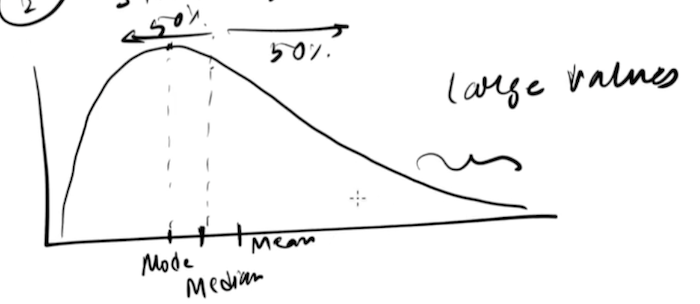 2
50%.
50%.
large values
Mode
Median
Mean